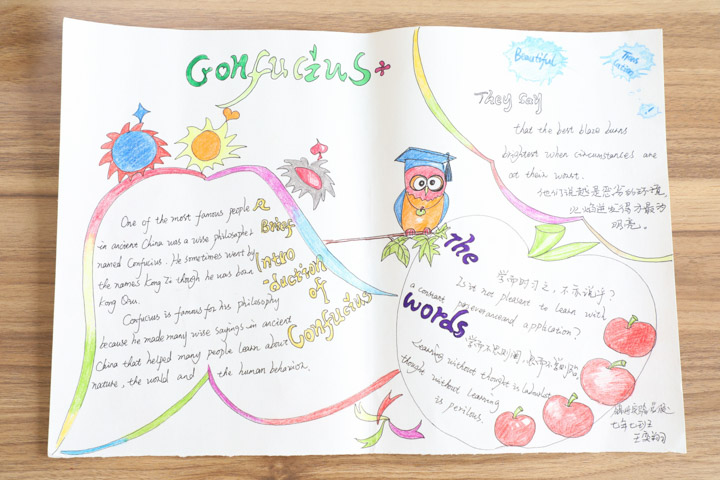 Confucius
Beautiful
Trans
lation
They Say
that the best blaze burns
brightest when circumstances are
at their worst.
他们说越是恶劣的环境
火焰迸发得才最为
明亮。
One of the most famous people
in ancient China was a wise philosopher
named Confucius. He sometimes went by
the names Kong Zi though he was born
Kong Qiu.
Confucius is famous for his philosophy
because he made many wise sayings in ancient
China that helped many people learn about
nature, the world and the human behavior.
A
Brief
Intro
-duction
of
Confucius
The
words
学而时习之，不亦说乎？
Is it not pleasant to learn with
a constant perseverance and application?
学而不思则罔，思而不学则殆。
Learning without thought is labor lost
thought without learning
is perilous.
七年七班